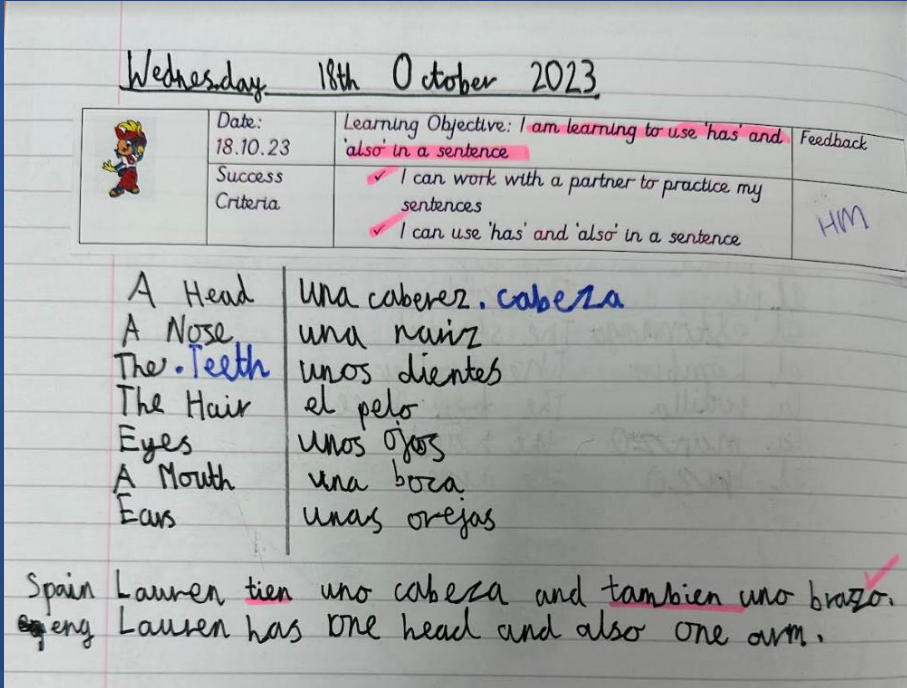 Wednesday 18th October 2023
Date: 18.10.23
Learning Objective: I am learning to use 'has' and 'also' in a sentence
Feedback
Success Criteria
✓ I can work with a partner to practice my sentences
✓ I can use 'has' and 'also' in a sentence
HM
A Head una caberez. cabeza
A Nose una nariz
The Teeth unos dientes
The Hair el pelo
Eyes unos ojos
A Mouth una boca
Ears unas orejas
Spain Lauren tien uno cabeza and tambien uno brazo.
eng Lauren has one head and also one arm.